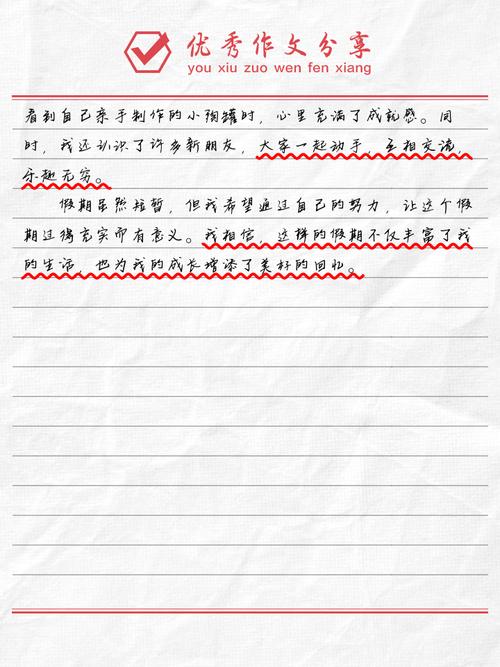 优秀作文分享
you xiu zuo wen fen xiang
看到自己亲手制作的小陶罐时，心里充满了成就感。同
时，我还认识了许多新朋友，大家一起动手，互相交流，
乐趣无穷。
假期虽然短暂，但我希望通过自己的努力，让这个假
期过得充实而有意义。我相信，这样的假期不仅丰富了我
的生活，也为我的成长增添了美好的回忆。